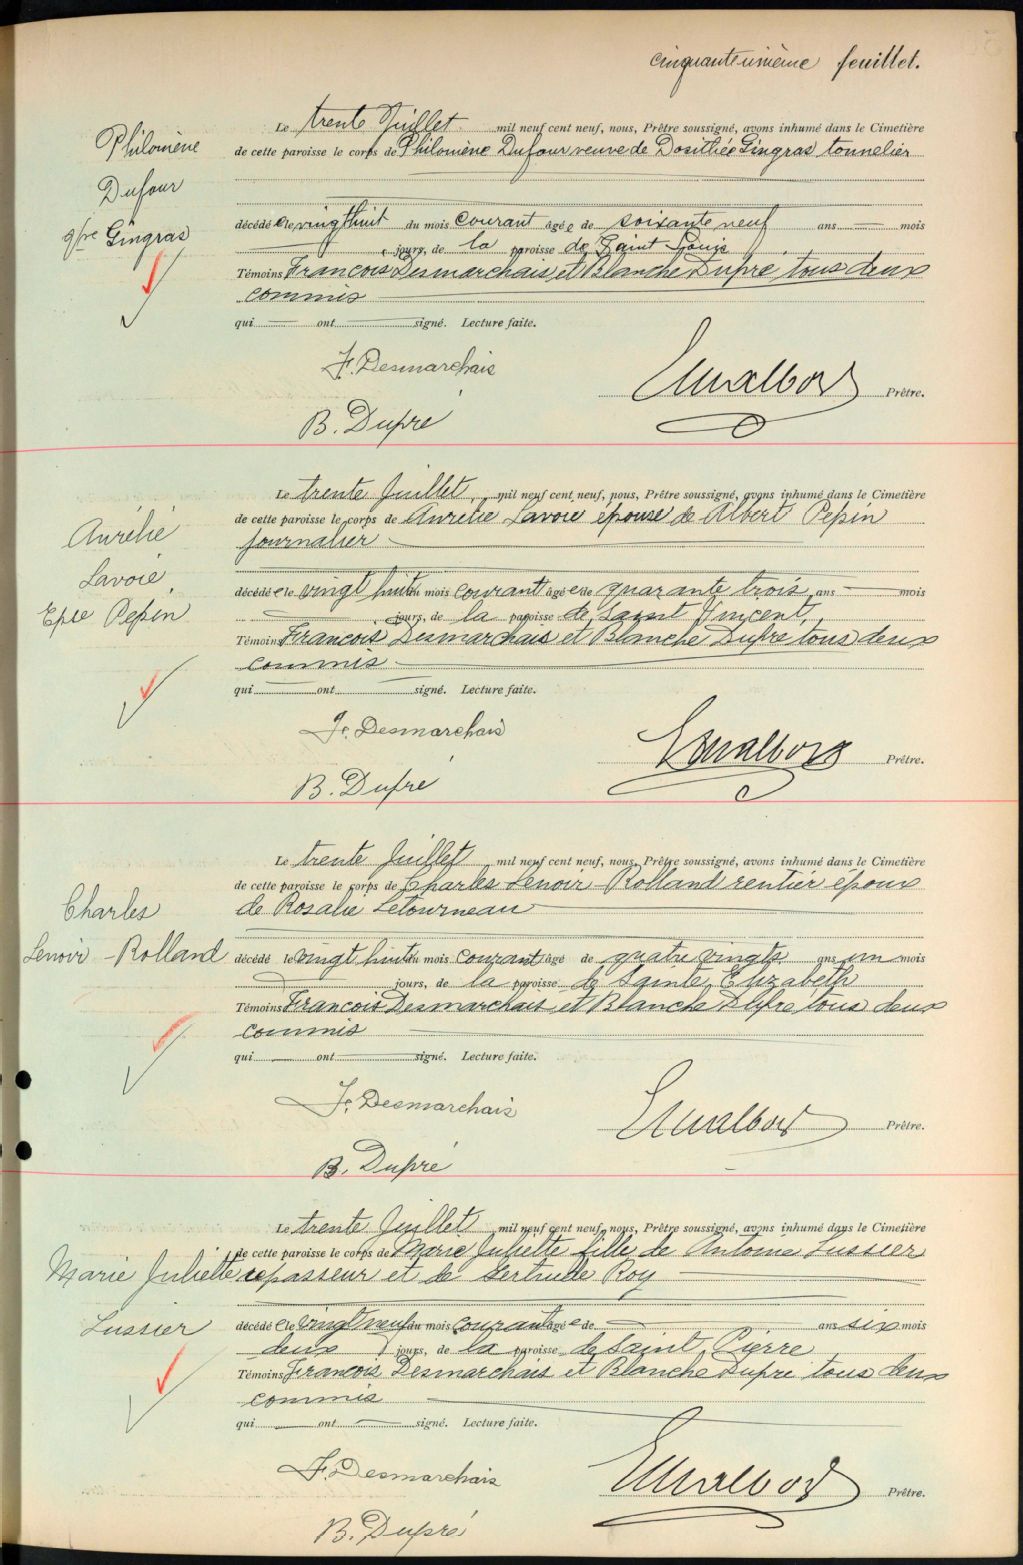 cinquante unième feuillet.
Philomène
Dufour
Gingras
Le trente Juillet mil neuf cent neuf, nous, Prêtre soussigné, avons inhumé dans le Cimetière
de cette paroisse le corps de Philomène Dufour veuve de Dosithée Gingras tonnelier
décédé e le vingt huit du mois courant âgé e de soixante neuf ans — mois
jours, de la paroisse de Saint Louis
Témoins François Desmarchais et Blanche Dupré tous deux
commis
qui — ont — signé. Lecture faite.
F. Desmarchais
Prêtre.
B. Dupré
Aurélie
Lavoie
Epse Pepin
Le trente Juillet mil neuf cent neuf, nous, Prêtre soussigné, avons inhumé dans le Cimetière
de cette paroisse le corps de Aurélie Lavoie épouse de Albert Pepin
journalier
décédé e le vingt huit du mois courant âgé e de quarante trois ans — mois
— jours, de la paroisse de Saint Vincent,
Témoins François Desmarchais et Blanche Dupré tous deux
commis
qui — ont — signé. Lecture faite.
F. Desmarchais
Prêtre.
B. Dupré
Charles
Lenoir - Rolland
Le trente Juillet mil neuf cent neuf, nous, Prêtre soussigné, avons inhumé dans le Cimetière
de cette paroisse le corps de Charles Lenoir - Rolland rentier époux
de Rosalie Letourneau
décédé le vingt huit du mois courant âgé de quatre vingts ans un mois
— jours, de la paroisse de Sainte Elizabeth
Témoins François Desmarchais et Blanche Dupré tous deux
commis
qui — ont — signé. Lecture faite.
F. Desmarchais
Prêtre.
B. Dupré
Marie Juliette
Lussier
Le trente Juillet mil neuf cent neuf, nous, Prêtre soussigné, avons inhumé dans le Cimetière
de cette paroisse le corps de Marie Juliette fille de Antoine Lussier
repasseur et de Gertrude Roy
décédé e le vingt neuf du mois courant âgé e de — ans six mois
deux jours, de la paroisse de Saint Pierre
Témoins François Desmarchais et Blanche Dupré tous deux
commis
qui — ont — signé. Lecture faite.
F. Desmarchais
Prêtre.
B. Dupré